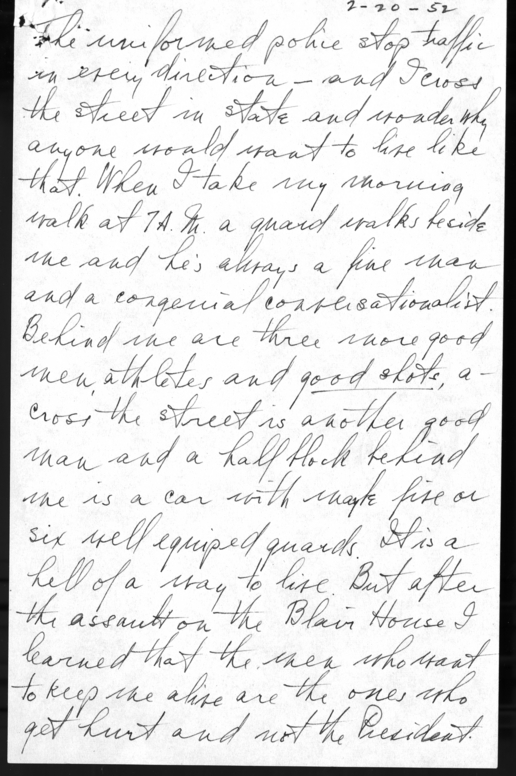 2-20-52
The uniformed police stop traffic
in every direction – and I cross
the street in state and wonder why
anyone would want to live like
that. When I take my morning
walk at 7 A.M. a guard walks beside
me and he's always a fine man
and a congenial conversationalist.
Behind me are three more good
men, athletes and good shots, a-
cross the street is another good
man and a half block behind
me is a car with maybe five or
six well equiped guards. It is a
hell of a way to live. But after
the assault on the Blair House I
learned that the men who want
to keep me alive are the ones who
get hurt and not the President.